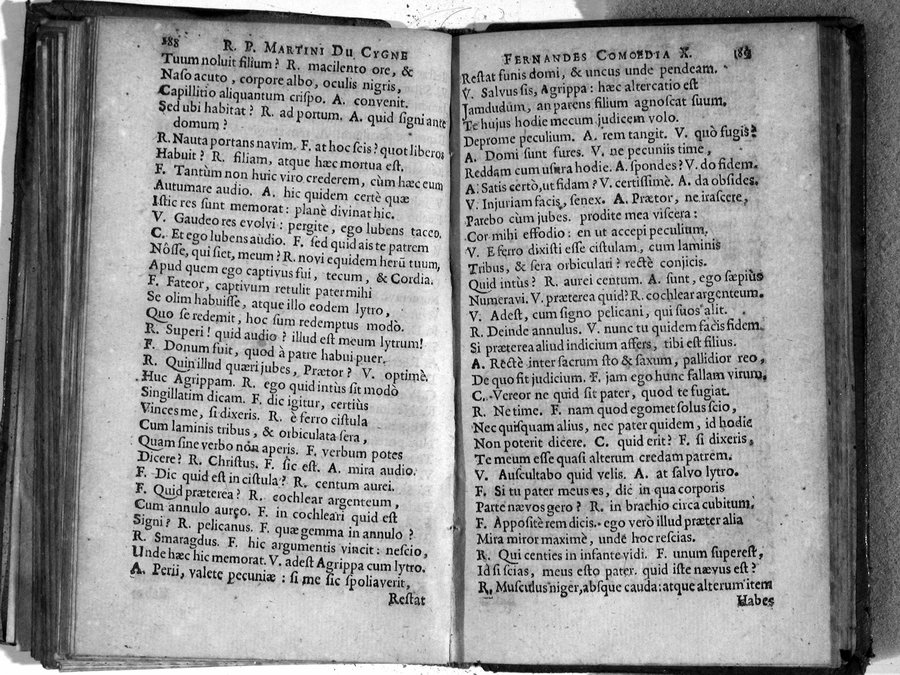 188 R. P. MARTINI DU CYGNE
Tuum noluit filium? R. macilento ore, &
Naso acuto, corpore albo, oculis nigris,
Capillitio aliquantum crispo. A. convenit.
Sed ubi habitat? R. ad portum. A. quid signi ante
domum?
R. Nauta portans navim. F. at hoc scis? quot liberos
Habuit? R. filiam, atque hæc mortua est.
F. Tantùm non huic viro crederem, cùm hæc eum
Autumare audio. A. hic quidem certè quæ
Istic res sunt memorat: planè divinat hic.
V. Gaudeo res evolvi: pergite, ego lubens taceo.
C. Et ego lubens audio. F. sed quid ais te patrem
Nôsse, qui siet, meum? R. novi equidem herū tuum,
Apud quem ego captivus fui, tecum, & Cordia.
F. Fateor, captivum retulit pater mihi
Se olim habuisse, atque illo eodem lytro,
Quo se redemit, hoc sum redemptus modò.
R. Superi! quid audio? illud est meum lytrum!
F. Donum fuit, quod à patre habui puer.
R. Quin illud quæri jubes, Prætor? V. optimè.
Huc Agrippam. R. ego quid intùs sit modò
Singillatim dicam. F. dic igitur, certiùs
Vinces me, si dixeris. R. è ferro cistula
Cum laminis tribus, & orbiculata sera,
Quam sine verbo non aperis. F. verbum potes
Dicere? R. Christus. F. sic est. A. mira audio.
F. Dic quid est in cistula? R. centum aurei.
F. Quid præterea? R. cochlear argenteum,
Cum annulo aureo. F. in cochleari quid est
Signi? R. pelicanus. F. quæ gemma in annulo?
R. Smaragdus. F. hic argumentis vincit: nescio,
Unde hæc hic memorat. V. adest Agrippa cum lytro.
A. Perii, valete pecuniæ: si me sic spoliaverit,
Restat
FERNANDES COMOEDIA X. 189
Restat funis domi, & uncus unde pendeam.
V. Salvus sis, Agrippa: hæc altercatio est
Jamdudum, an parens filium agnoscat suum.
Te hujus hodie mecum judicem volo.
Deprome peculium. A. rem tangit. V. quò fugis?
A. Domi sunt fures. V. ne pecuniis time,
Reddam cum usura hodie. A. spondes? V. do fidem.
A. Satis certò, ut fidam? V. certissimè. A. da obsides.
V. Injuriam facis, senex. A. Prætor, ne irascere,
Parebo cùm jubes. prodite mea viscera:
Cor mihi effodio: en ut accepi peculium.
V. E ferro dixisti esse cistulam, cum laminis
Tribus, & sera orbiculari? rectè conjicis.
Quid intùs? R. aurei centum. A. sunt, ego sæpiùs
Numeravi. V. præterea quid? R. cochlear argenteum.
V. Adest, cum signo pelicani, qui suos alit.
R. Deinde annulus. V. nunc tu quidem facis fidem.
Si præterea aliud indicium affers, tibi est filius.
A. Rectè inter sacrum sto & saxum, pallidior reo,
De quo sit judicium. F. jam ego hunc fallam virum.
C. Vereor ne quid sit pater, quod te fugiat.
R. Ne time. F. nam quod egomet solus scio,
Nec quisquam alius, nec pater quidem, id hodie
Non poterit dicere. C. quid erit? F. si dixeris,
Te meum esse quasi alterum credam patrem.
V. Auscultabo quid velis. A. at salvo lytro.
F. Si tu pater meus es, dic in qua corporis
Parte nævos gero? R. in brachio circa cubitum.
F. Appositè rem dicis. ego verò illud præter alia
Mira miror maximè, unde hoc rescias.
R. Qui centies in infante vidi. F. unum superest,
Id si scias, meus esto pater. quid iste nævus est?
R. Musculus niger, absque cauda: atque alterum item
Habes